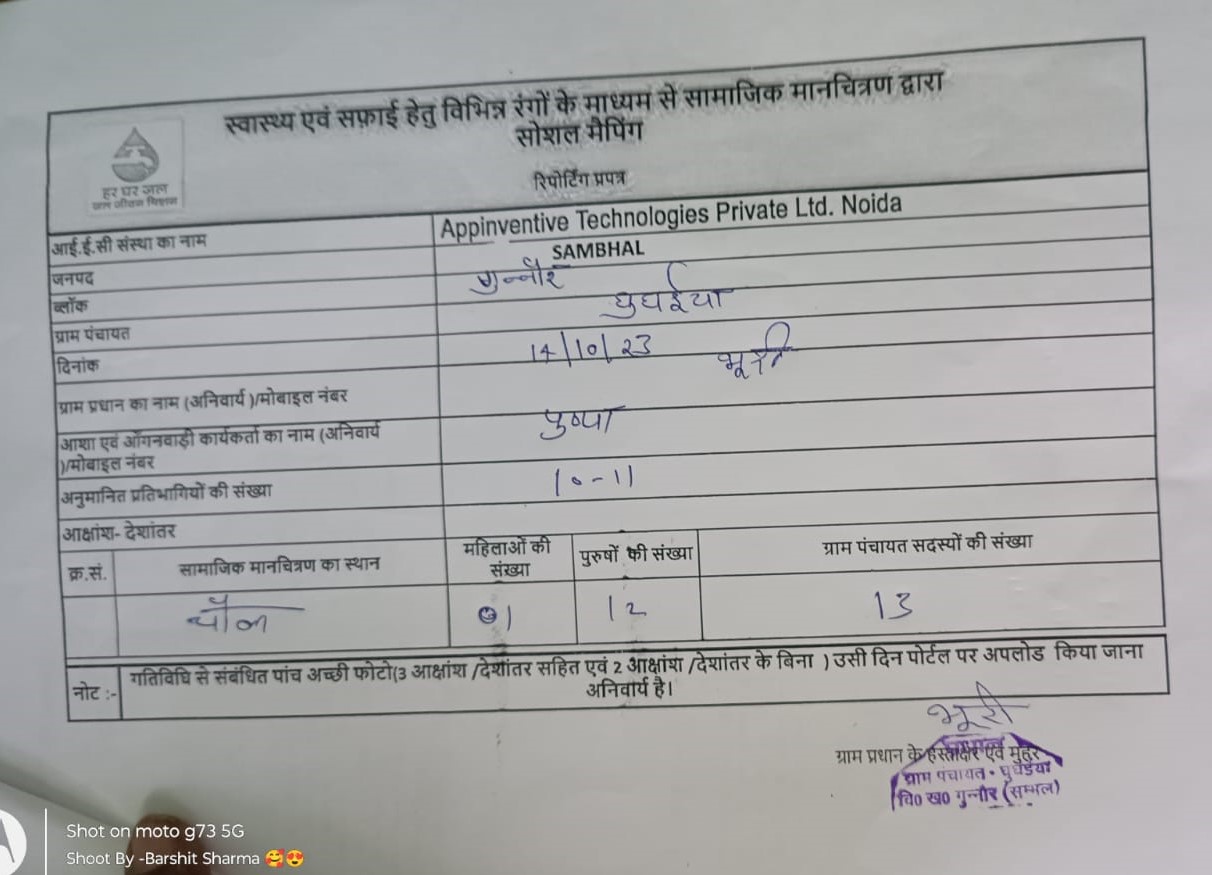 स्वास्थ्य एवं सफ़ाई हेतु विभिन्न रंगों के माध्यम से सामाजिक मानचित्रण द्वारा
सोशल मैपिंग
रिपोर्टिंग प्रपत्र
हर घर जल
जल जीवन मिशन
आई.ई.सी संस्था का नाम Appinventive Technologies Private Ltd. Noida
जनपद SAMBHAL
ब्लॉक गुन्नौर
ग्राम पंचायत घुघईया
दिनांक 14/10/23
ग्राम प्रधान का नाम (अनिवार्य )/मोबाइल नंबर भूरी
आशा एवं ऑगनवाड़ी कार्यकर्ता का नाम (अनिवार्य
)/मोबाइल नंबर पुष्पा
अनुमानित प्रतिभागियों की संख्या 10-11
आक्षांश- देशांतर
क्र.सं. सामाजिक मानचित्रण का स्थान महिलाओं की संख्या पुरुषों की संख्या ग्राम पंचायत सदस्यों की संख्या
01 12 13
नोट :- गतिविधि से संबंधित पांच अच्छी फोटो(3 आक्षांश /देशांतर सहित एवं 2 आक्षांश /देशांतर के बिना ) उसी दिन पोर्टल पर अपलोड किया जाना
अनिवार्य है।
भूरी
ग्राम प्रधान के हस्ताक्षर एवं मुहर
ग्राम पंचायत - घुघईया
वि० ख० गुन्नौर (सम्भल)
Shot on moto g73 5G
Shoot By -Barshit Sharma 🥰😍